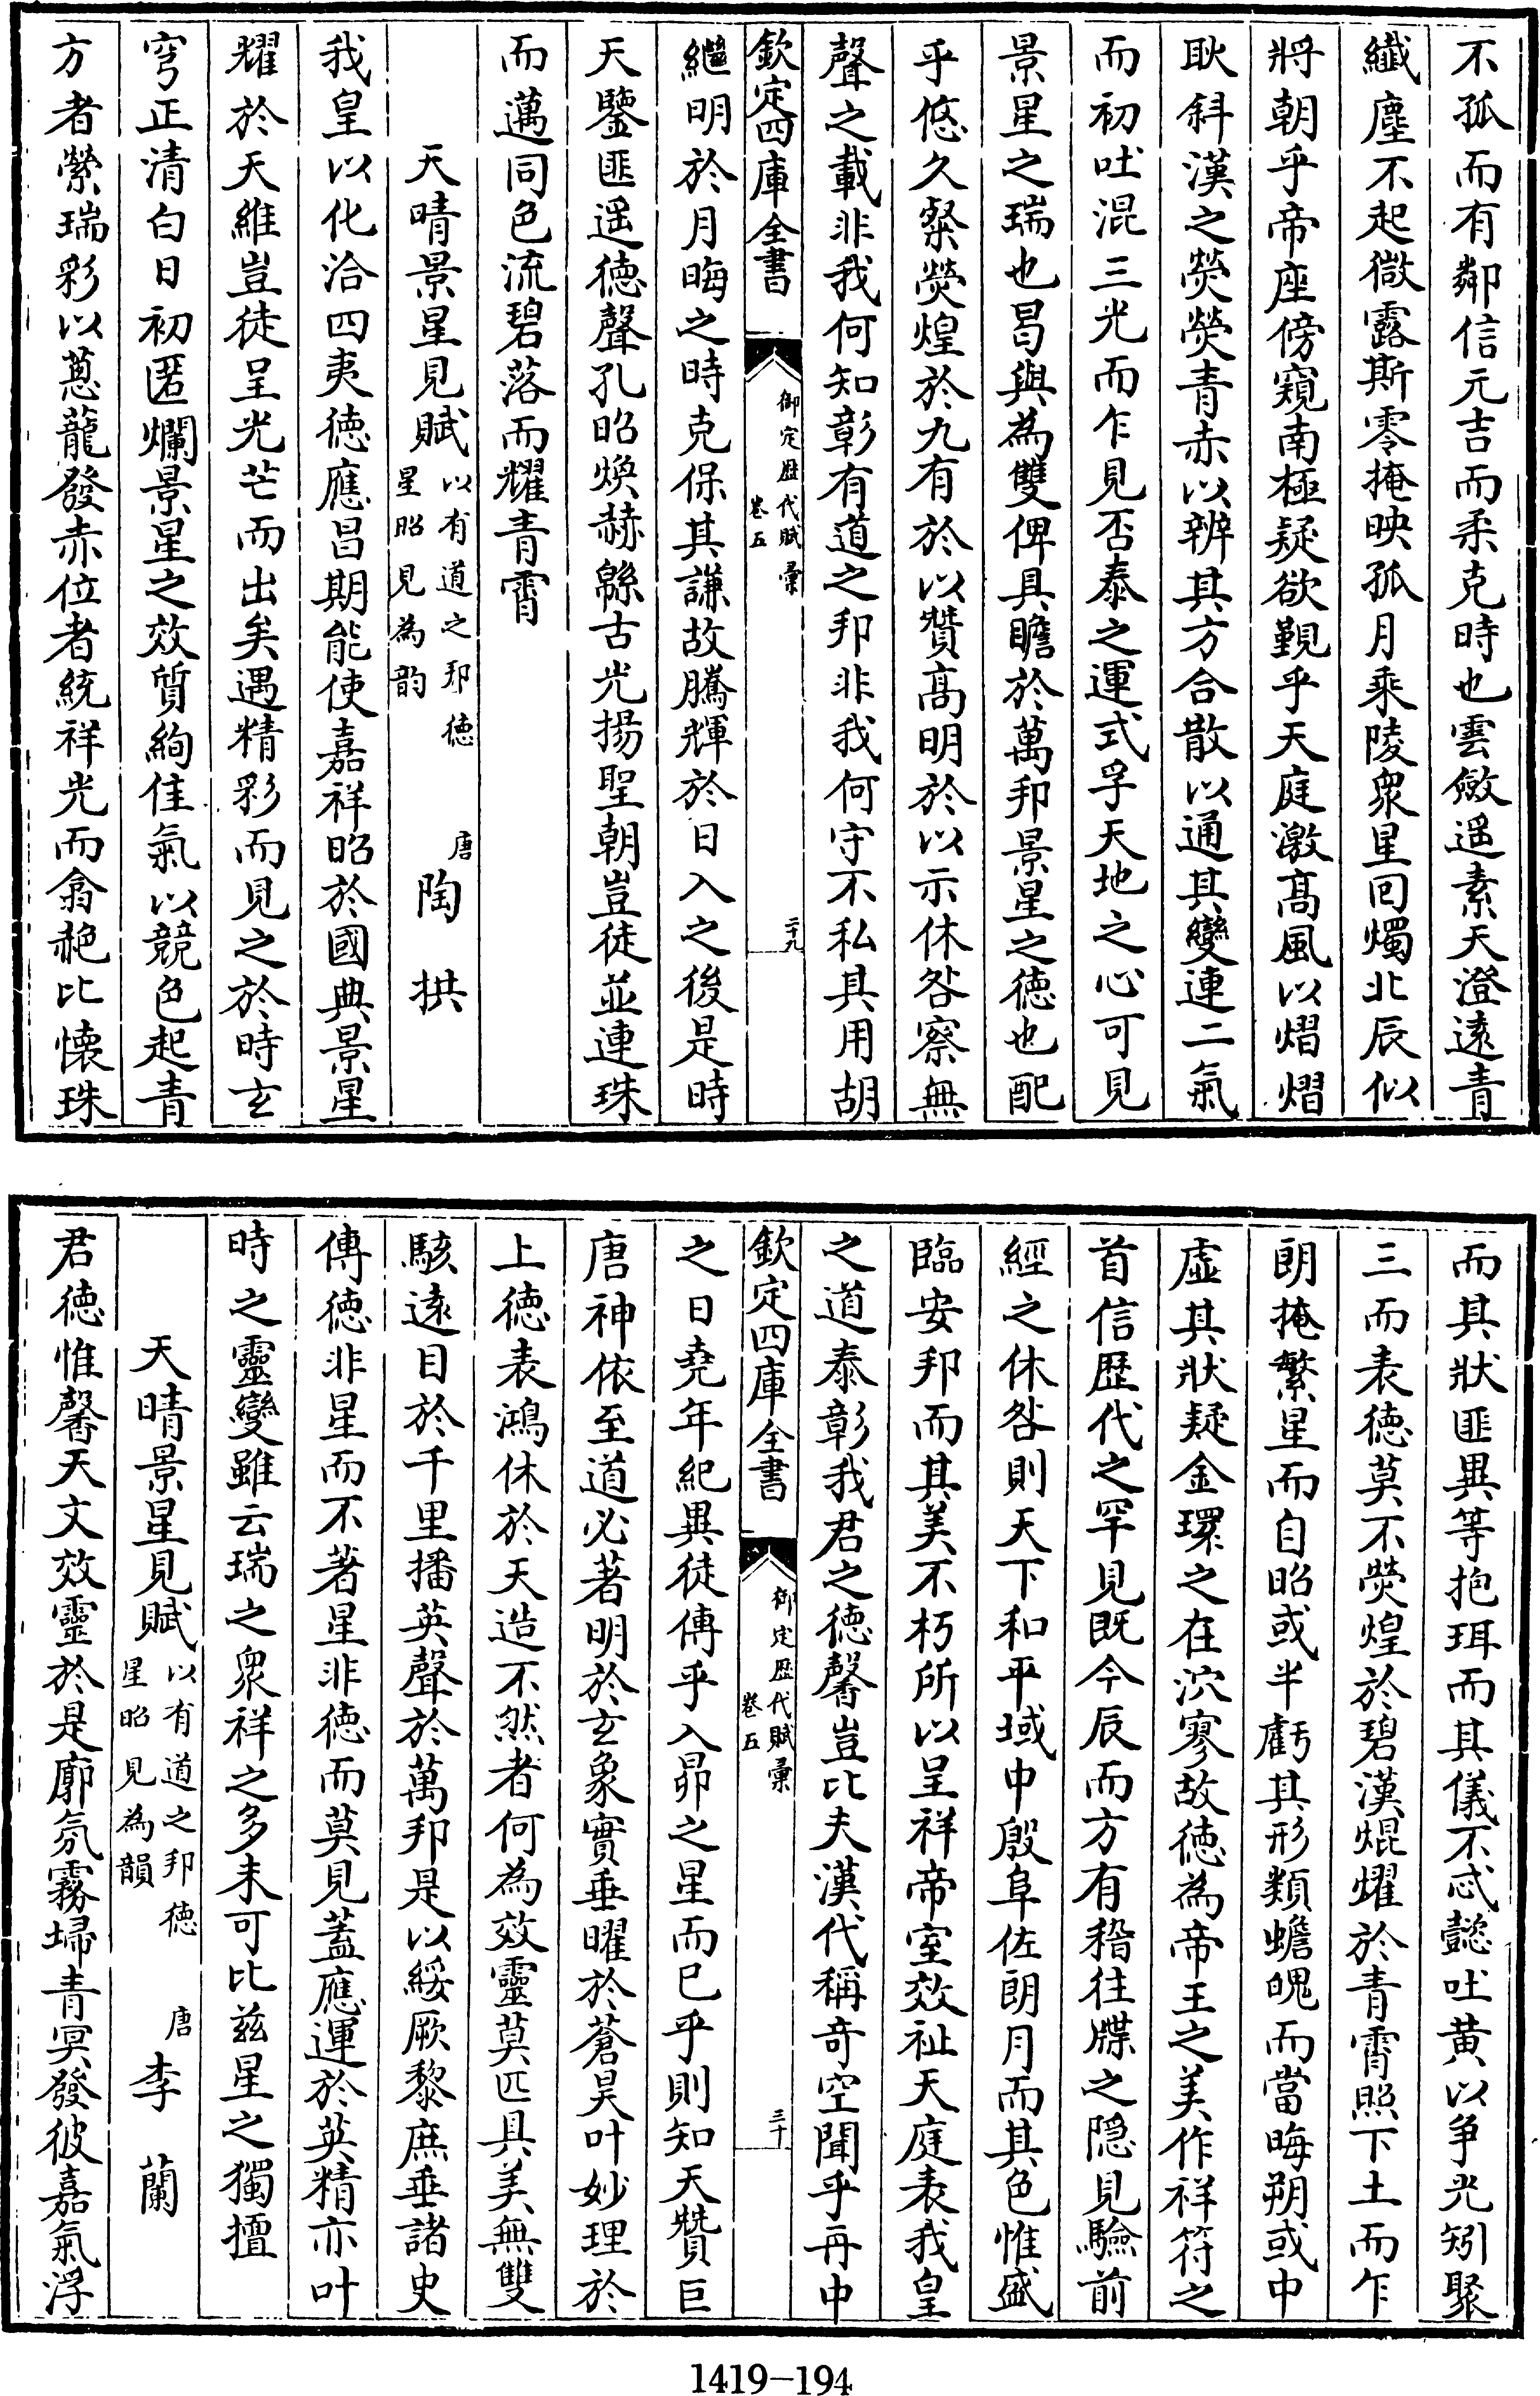 不孤而有鄰信元吉而柔克時也雲斂遥素天澄逺青
纎塵不起微露斯零掩映孤月乘陵衆星回燭北辰似
將朝乎帝座傍窺南極疑欲覲乎天庭激髙風以熠熠
耿斜漢之熒熒青赤以辨其方合散以通其變連二氣
而初吐混三光而乍見否泰之運式孚天地之心可見
景星之瑞也曷與為雙俾具瞻於萬邦景星之徳也配
乎悠久粲熒煌於九有於以贊髙明於以示休咎察無
聲之載非我何知彰有道之邦非我何守不私其用胡
欽定四庫全書
御定歴代賦彙
卷五
二十九
繼明於月晦之時克保其謙故騰輝於日入之後是時
天鑒匪遥徳聲孔昭煥赫緜古光揚聖朝豈徒並連珠
而邁同色流碧落而耀青霄
天晴景星見賦
以有道之邦徳
星昭見為韵
唐
陶拱
我皇以化洽四夷徳應昌期能使嘉祥昭於國典景星
耀於天維豈徒呈光芒而出矣遇精彩而見之於時玄
穹正清白日初匿爛景星之效質絢佳氣以競色起青
方者縈瑞彩以蔥蘢發赤位者統祥光而翕赩比懷珠
而其狀匪異等抱珥而其儀不忒懿吐黄以争光矧聚
三而表徳莫不熒煌於碧漢焜燿於青霄照下土而乍
朗掩繁星而自昭或半虧其形類蟾魄而當晦朔或中
虛其狀疑金環之在泬寥故徳為帝王之美作祥符之
首信歴代之罕見既今辰而方有稽往牒之隠見驗前
經之休咎則天下和平域中殷阜佐朗月而其色惟盛
臨安邦而其美不朽所以呈祥帝室效祉天庭表我皇
之道泰彰我君之徳馨豈比夫漢代稱奇空聞乎再中
欽定四庫全書
御定歴代賦彙
卷五
三十
之日堯年紀異徒傳乎入昴之星而已乎則知天贊巨
唐神依至道必著明於玄象實垂曜於蒼昊叶妙理於
上徳表鴻休於天造不然者何為效靈莫匹具美無雙
駭逺目於千里播英聲於萬邦是以綏厥黎庶垂諸史
傳徳非星而不著星非徳而莫見蓋應運於英精亦叶
時之靈變雖云瑞之衆祥之多未可比兹星之獨擅
天晴景星見賦
以有道之邦徳
星昭見為韻
唐
李蘭
君徳惟馨天文效靈於是廓氛霧埽青冥發彼嘉氣浮
1419-194